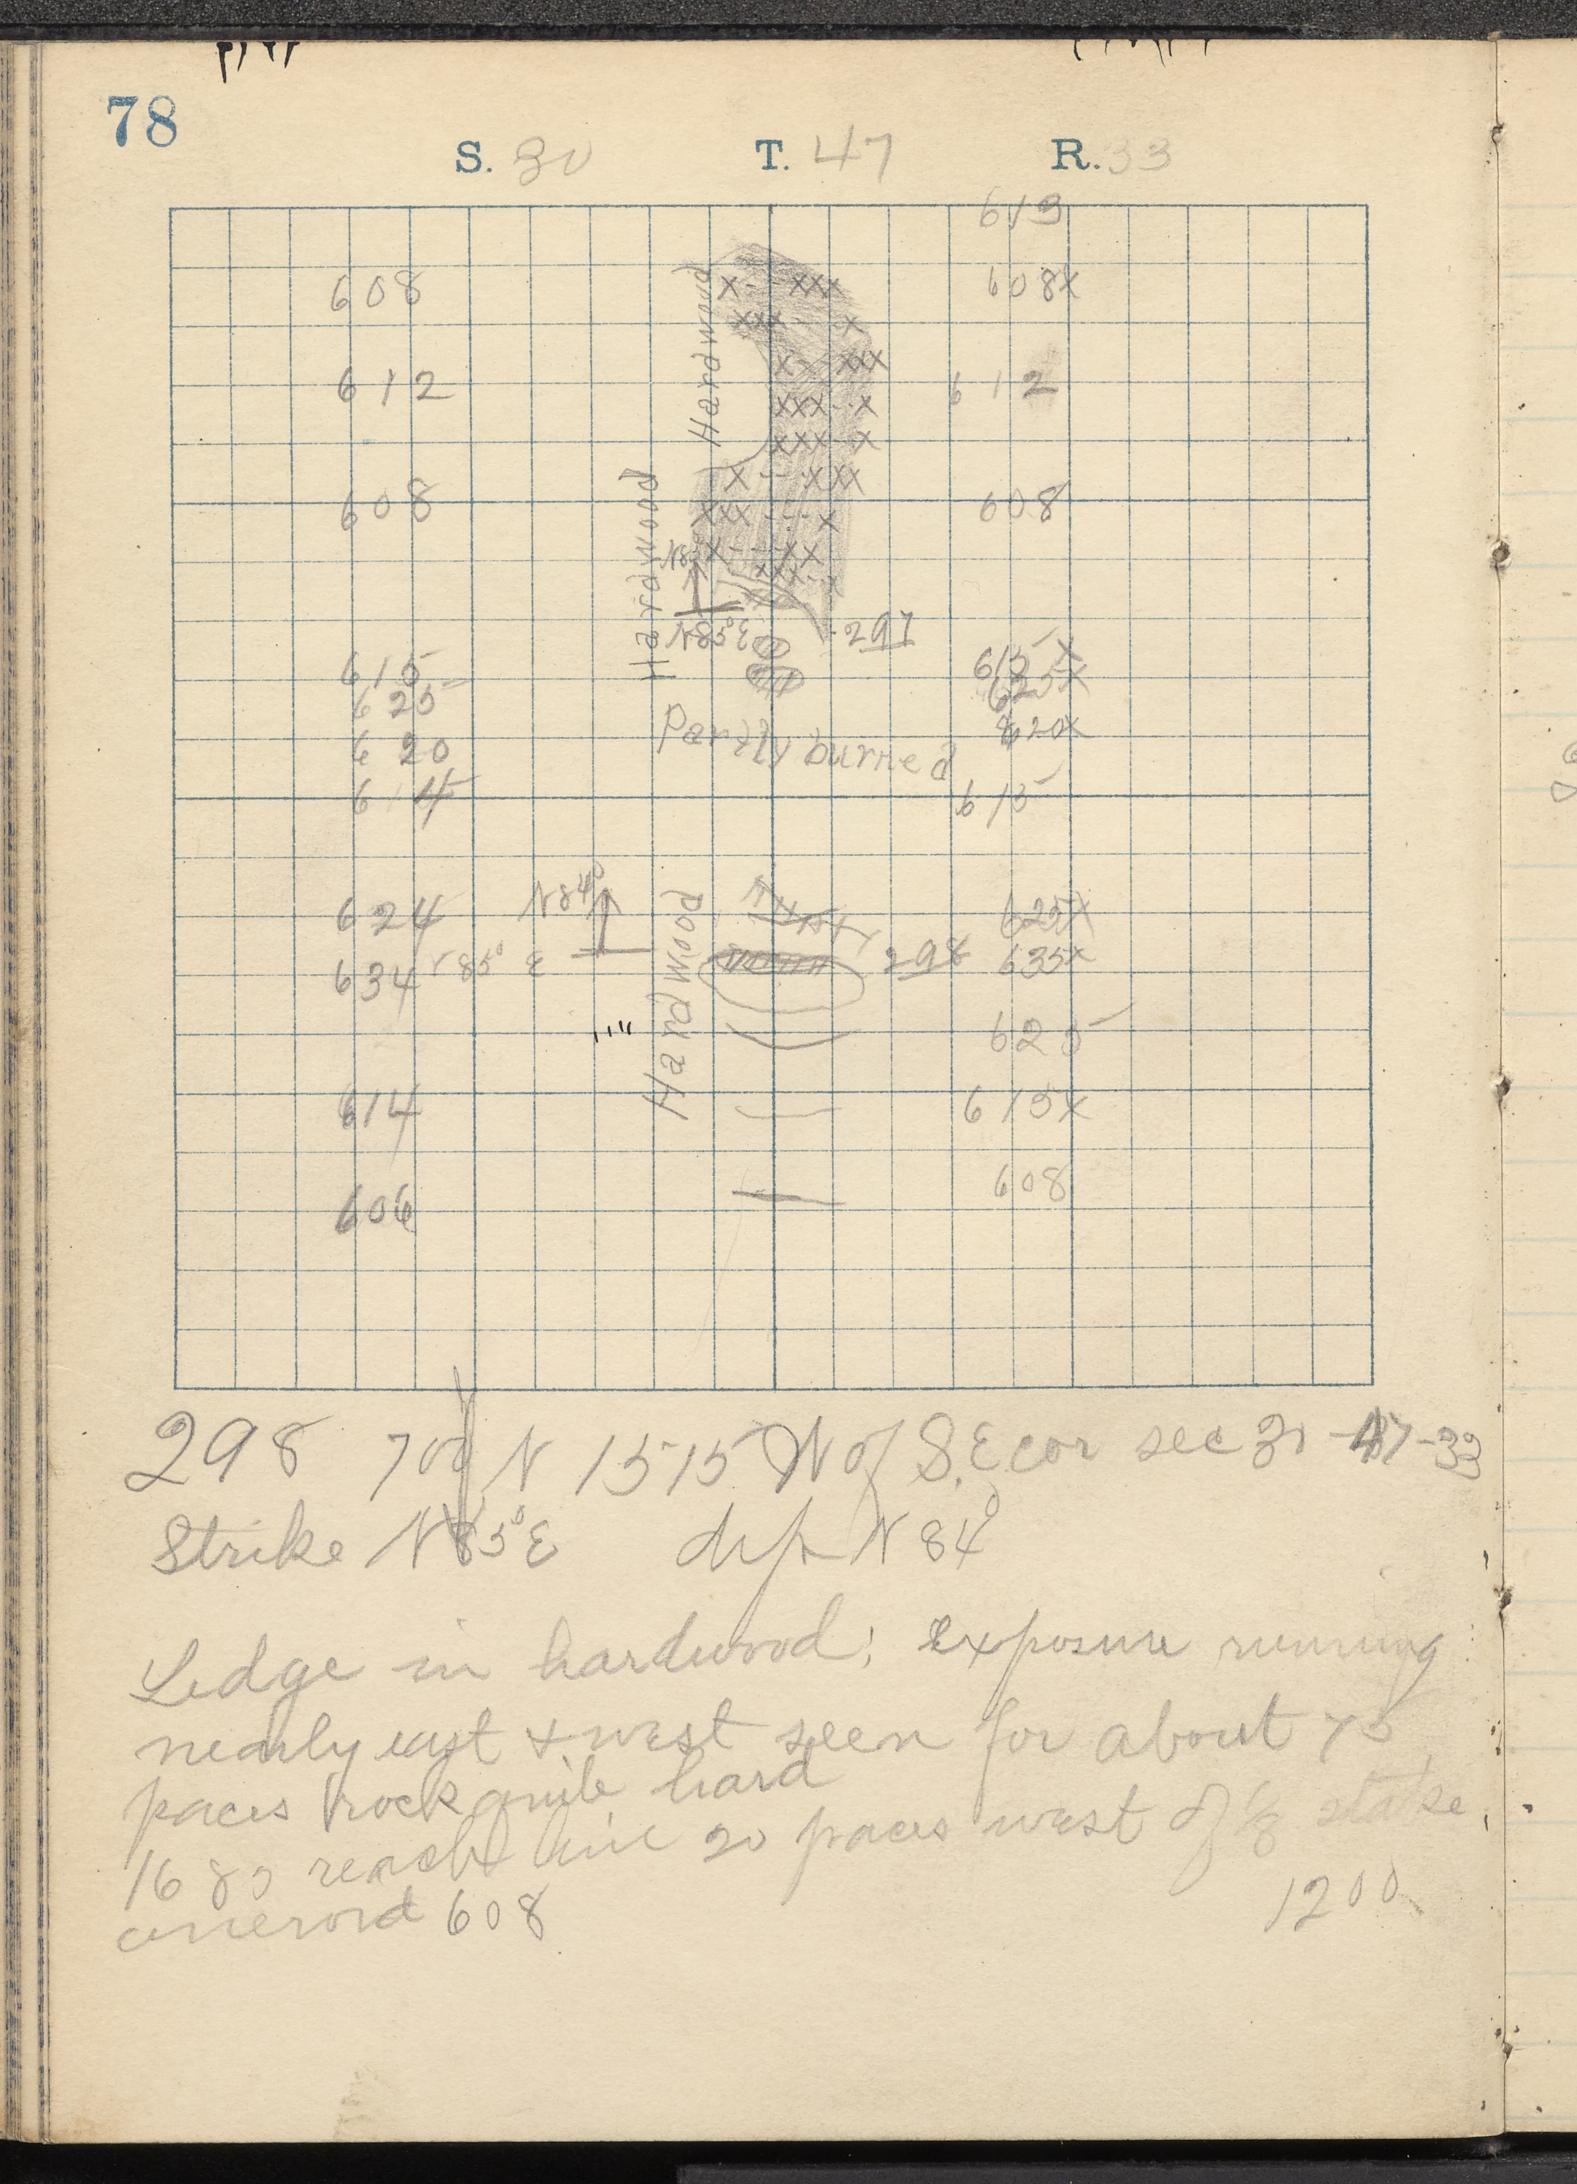 78
S. 30 T. 47 R. 33
613
608 Hardwood 608X
612 612
608 Hardwood 608
N85°E 297
615 615X
625 625X
620 Partly burned 620X
615
N84°
624 Hardwood 625X
634 N85° E 298 635X
625
614 615X
606 608
298 700 N 1515 W of S.E cor sec 30-47-33
Strike N85°E dip N 84°
Ledge in hardwood; exposure running
nearly east & west seen for about 75
paces rock quite hard
1680 reach line 20 paces west of 1/8 stake
aneroid 608 1200